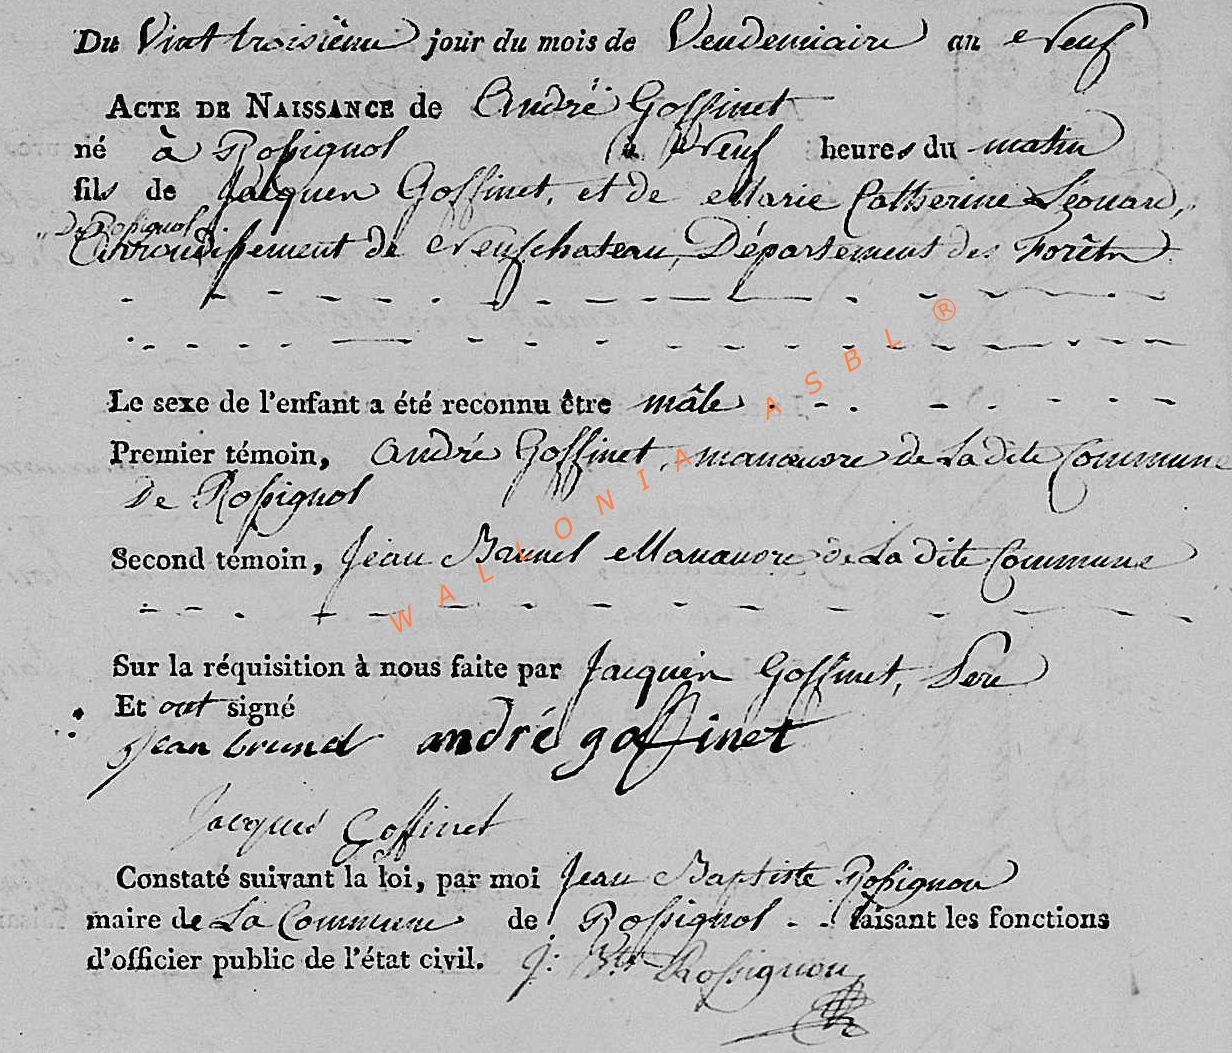 Du Vint troisième jour du mois de Vendemiaire an Neuf
ACTE DE NAISSANCE de André Goffinet
né à Rossignol à Neuf heures du matin
fils de Jacques Goffinet, et de Marie Catherine Léonard,
De Rossignol
Arrondissement de Neufchateau, Département des Forêts
Le sexe de l'enfant a été reconnu être mâle
Premier témoin, André Goffinet, manœuvre de La dite Commune
De Rossignol
Second témoin, Jean Brunel Manœuvre de La dite Commune
Sur la réquisition à nous faite par Jacques Goffinet, Pere
Et ont signé
jean brunel andré goffinet
Jacques Goffinet
Constaté suivant la loi, par moi Jean Baptiste Rossignon
maire de La Commune de Rossignol faisant les fonctions
d'officier public de l'état civil. J: Bte Rossignon
WALLONIA ASBL ®